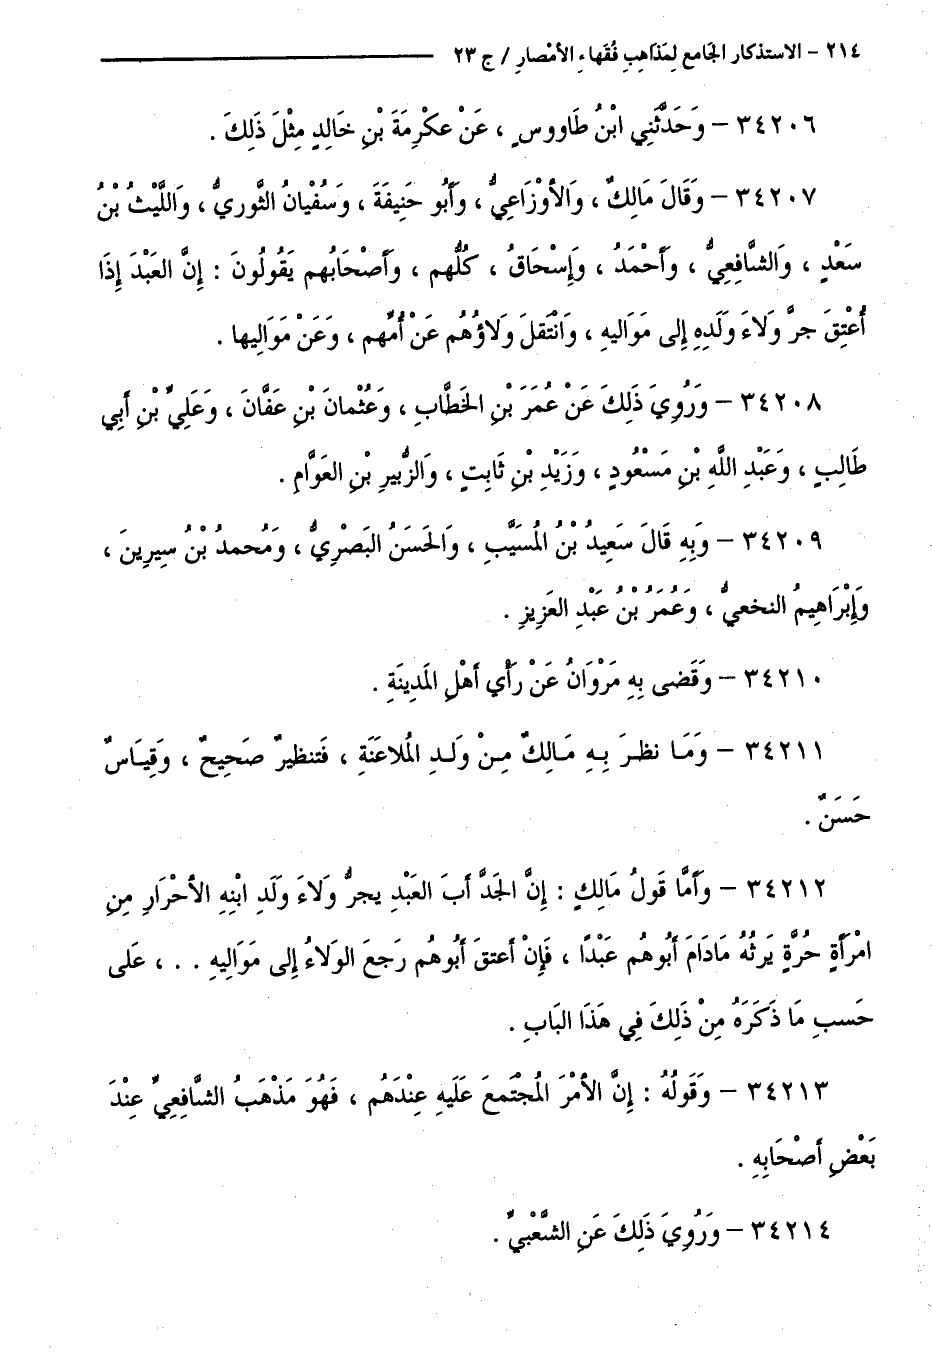 ٢١٤ – الاستذكار الجَامع لِمَذاهِبِ فُقَهاءِ الأمْصارِ / ج ٢٣
٣٤٢٠٦ – وَحَدَّثَنِي ابْنُ طَاووسٍ ، عَنْ عكْرِمَةَ بْنِ خَالِدٍ مِثْلَ ذَلِكَ .
٣٤٢٠٧ – وَقَالَ مَالِكٌ ، وَالأوْزَاعِيُّ ، وَأَبُو حَنِيفَةَ ، وَسُفْيانُ الثَّوريُّ ، وَاللَّيْثُ بْنُ
سَعْدٍ ، وَالشَّافِعِيُّ ، وَأَحْمَدُ ، وَإِسْحَاقُ ، كُلُّهم ، وَأصْحَابُهم يَقُولُونَ : إِنَّ العَبْدَ إِذَا
أُعْتِقَ جرَّ ولَاءَ وَلَدِهِ إِلى مَوَاليهِ ، وَانْتَقلَ وَلَاؤُهُم عَنْ أُمِّهم ، وَعَنْ مَوَالِيها .
٣٤٢٠٨ – وَرُوِيَ ذَلِكَ عَنْ عُمَرَ بْنِ الخَطَّابِ ، وَعُثْمانَ بْنِ عَفَّانَ ، وَعَلِيِّ بْنِ أَبِي
طَالِبٍ ، وَعَبْدِ اللَّهِ بْنِ مَسْعُودٍ ، وَزَيْدِ بْنِ ثَابِتٍ ، وَالزُّبيرِ بْنِ العَوَّامِ .
٣٤٢٠٩ – وَبِهِ قَالَ سَعِيدُ بْنُ المُسَيَّبِ ، وَالحَسَنُ البَصْرِيُّ ، وَمُحمدُ بْنُ سِيرِينَ ،
وَإِبْرَاهِيمُ النخعيُّ ، وَعُمَرُ بْنُ عَبْدِ العَزِيزِ .
٣٤٢١٠ – وَقَضى بِهِ مَرْوَانُ عَنْ رَأْيِ أَهْلِ المَدِينَةِ .
٣٤٢١١ – وَمَا نظرَ بِهِ مَالِكٌ مِنْ وَلَدِ المُلاعَنَةِ ، فَتنظيرٌ صَحِيحٌ ، وَقِيَاسٌ
حَسَنٌ .
٣٤٢١٢ – وَأَمَّا قَولُ مَالِكٍ : إِنَّ الجَدَّ أبَ العَبْدِ يجرُّ وَلَاءَ وَلَدِ ابْنِهِ الأَحْرَارِ مِنِ
امْرَأَةٍ حُرَّةٍ يَرثُهُ مَادَامَ أَبُوهُم عَبْدًا ، فَإِنْ أعتقَ أَبُوهُم رَجعَ الوَلَاءُ إِلى مَوَالِيهِ . . ، عَلى
حَسبِ مَا ذَكَرَهُ مِنْ ذَلِكَ فِي هَذَا البَابِ .
٣٤٢١٣ – وَقَولُهُ : إِنَّ الأَمْرَ المُجْتَمعَ عَلَيهِ عِنْدَهُم ، فَهُوَ مَذْهَبُ الشَّافِعِيِّ عِنْدَ
بَعْضِ أَصْحَابِهِ .
٣٤٢١٤ – وَرُوِيَ ذَلِكَ عَنِ الشَّعْبيِّ .